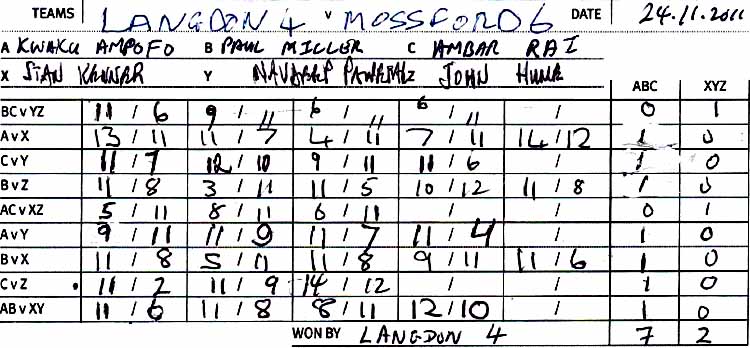 TEAMS LANGDON 4 V MOSSFORD 6 DATE 24.11.2011
A KWAKU AMPOFO B PAUL MILLER C AMBAR RAI
X Y JOHN
ABC XYZ
BC v YZ 11 / 6 9 / 11 6 / 11 6 / 11 / 0 1
A v X 13 / 11 11 / 7 4 / 11 7 / 11 14 / 12 1 0
C v Y 11 / 7 12 / 10 9 / 11 11 / 6 / 1 0
B v Z 11 / 8 3 / 11 11 / 5 10 / 12 11 / 8 1 0
AC v XZ 5 / 11 8 / 11 6 / 11 / / 0 1
A v Y 9 / 11 11 / 9 11 / 7 11 / 4 / 1 0
B v X 11 / 8 5 / 11 11 / 8 9 / 11 11 / 6 1 0
C v Z . 11 / 2 11 / 9 14 / 12 / / 1 0
AB v XY 11 / 6 11 / 8 8 / 11 12 / 10 / 1 0
WON BY LANGDON 4 7 2